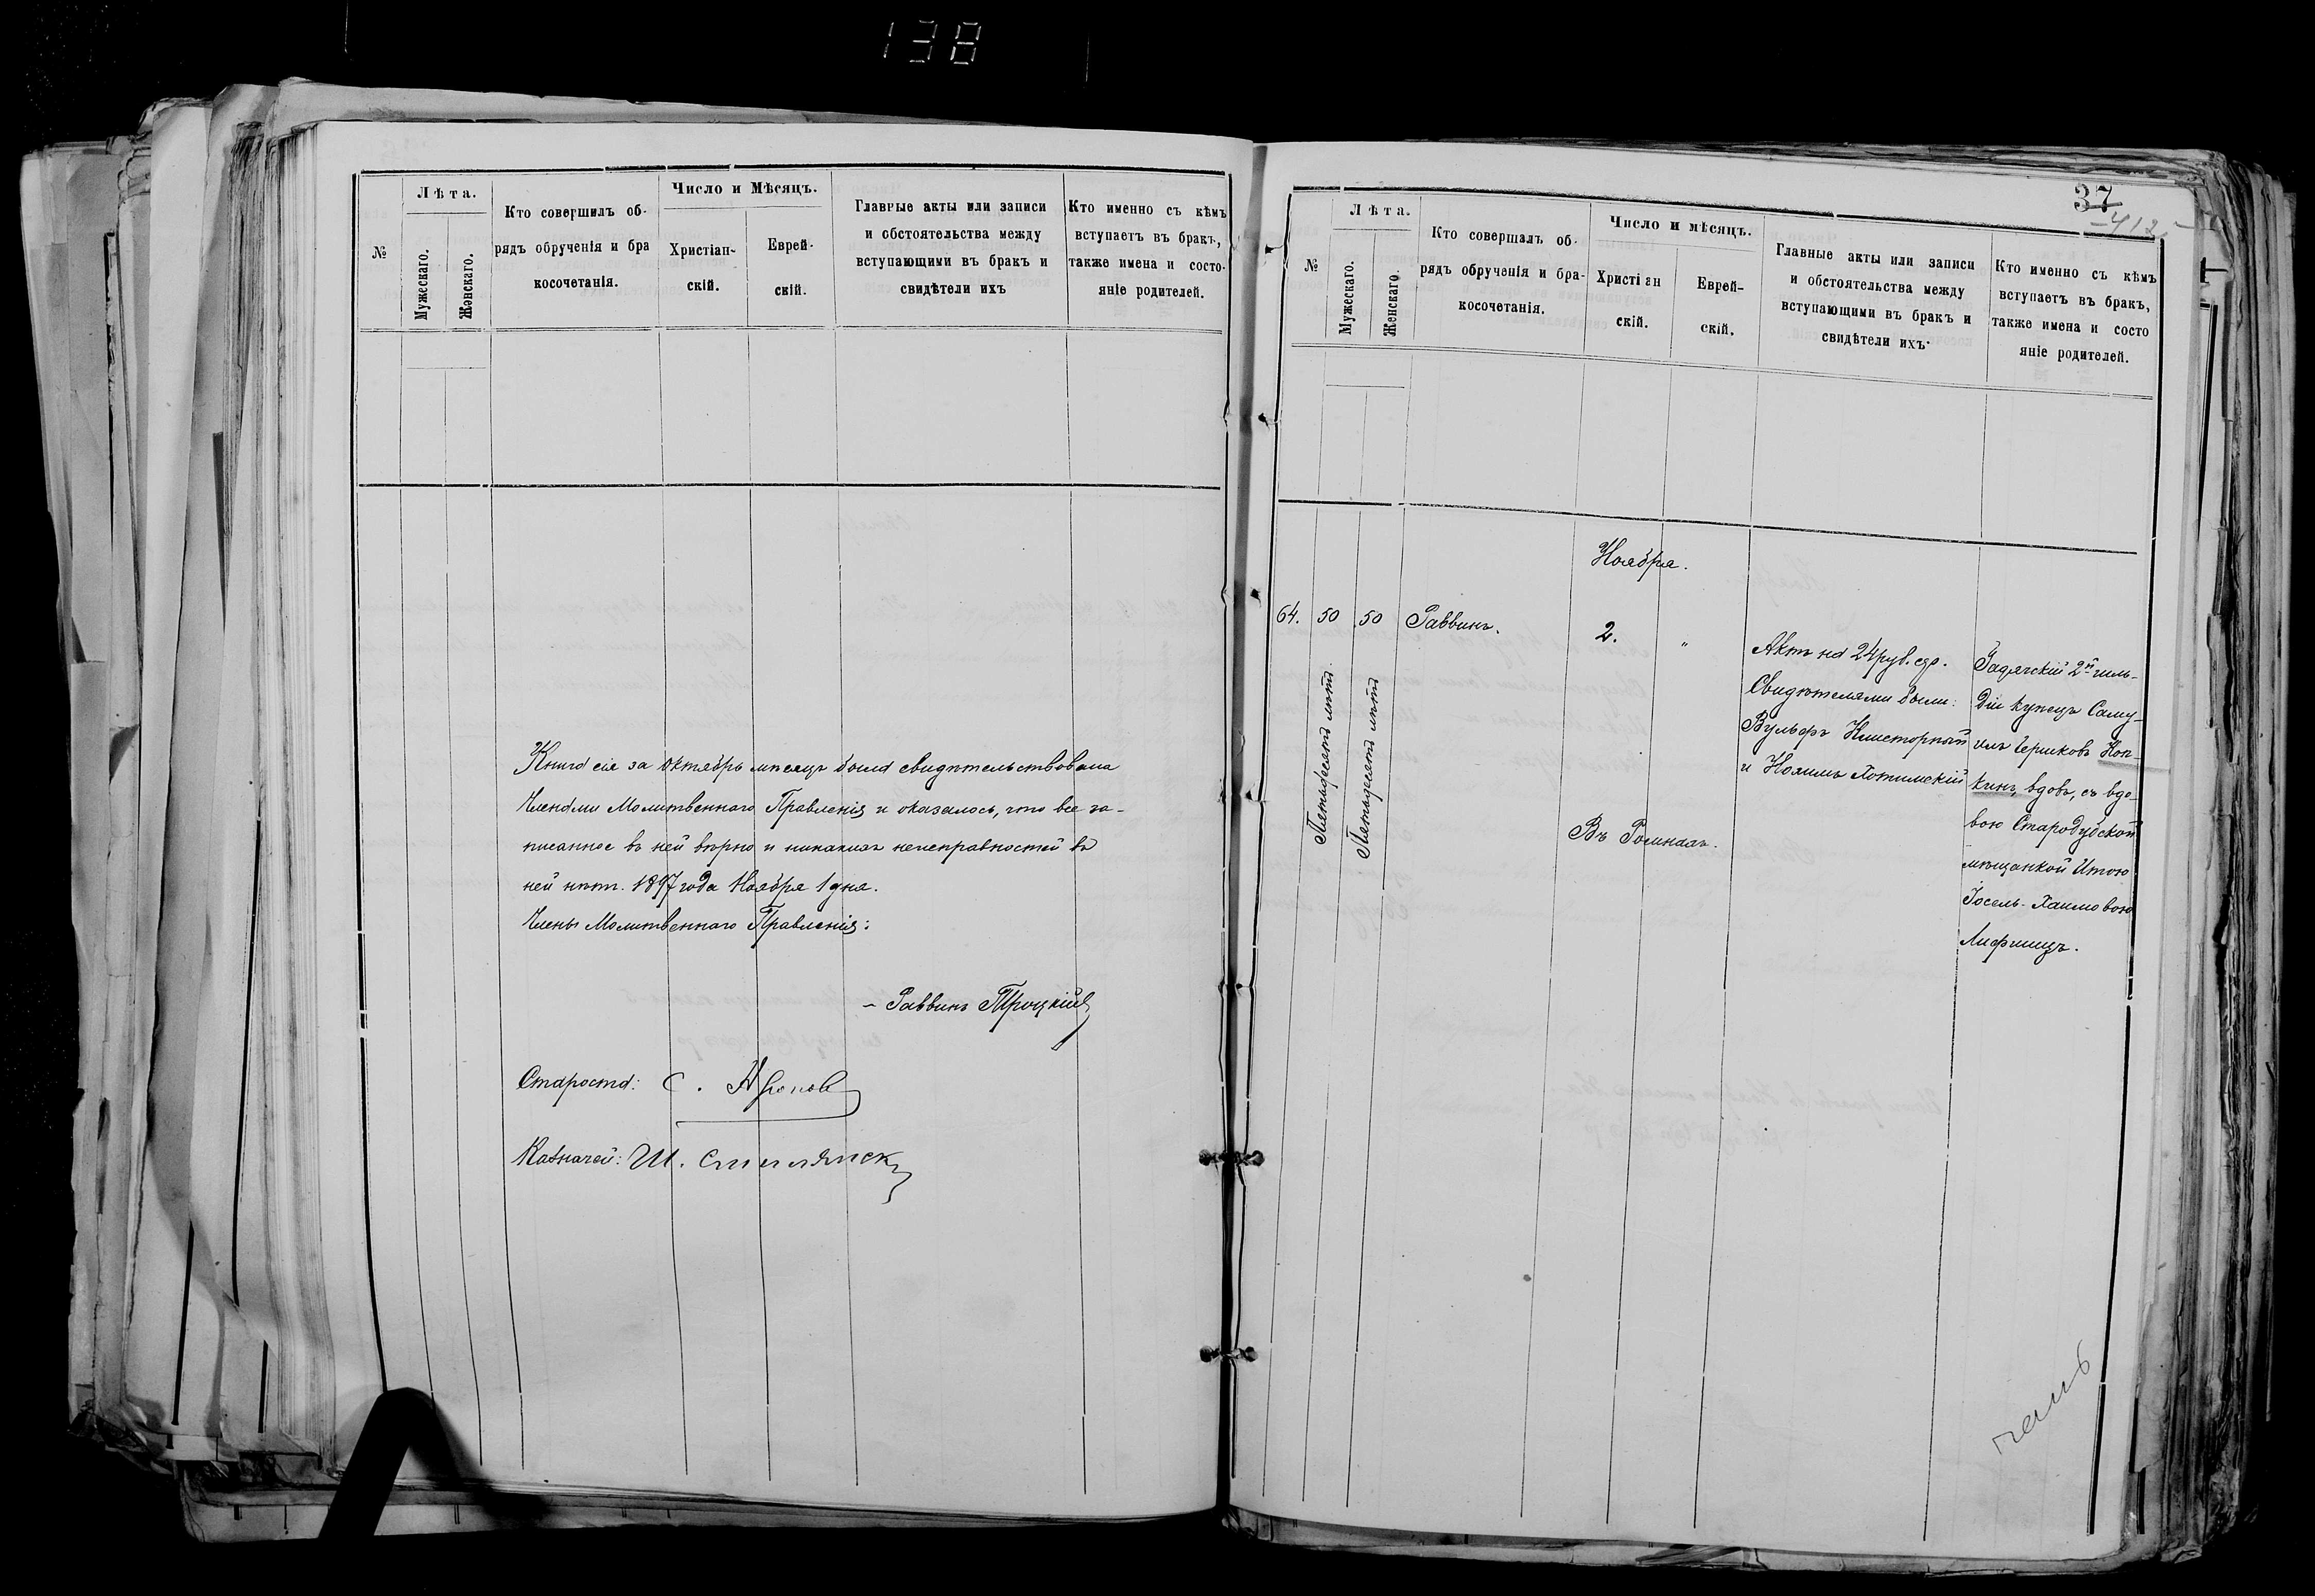 138
№
Лѣта.
Мужескаго.
Женскаго.
Кто совершилъ об-
рядъ обрученія и бра
косочетанія.
Число и Мѣсяцъ.
Христіан-
скій.
Еврей-
скій.
Главные акты или записи
и обстоятельства между
вступающими въ бракъ и
свидѣтели ихъ
Кто именно съ кѣмъ
вступаетъ въ бракъ,
также имена и состо-
яніе родителей.
Книга сія за Октябрь мѣсяцъ была свидѣтельствована
Членами Молитвеннаго Правленія и оказалось, что все за-
писанное въ ней вѣрно и никакихъ неисправностей въ
ней нѣтъ. 1897 года Ноября 1 дня.
Члены Молитвеннаго Правленія:
Раввинъ Троцкій
Староста: С.
Казначей: Ш.
37
412
№
Лѣта.
Мужескаго.
Женскаго.
Кто совершалъ об-
рядъ обрученія и бра-
косочетанія.
Число и мѣсяцъ.
Христіан
скій.
Еврей-
скій.
Главные акты или записи
и обстоятельства между
вступающими въ бракъ и
свидѣтели ихъ
Кто именно съ кѣмъ
вступаетъ въ бракъ,
также имена и состо
яніе родителей.
Ноября.
64. 50 50 Раввинъ. 2. "
Пятьдесятъ лѣтъ.
Пятьдесятъ лѣтъ
Въ Ромнахъ.
Актъ на 24 руб. сер.
Свидѣтелями были:
Вульфъ Клисторный
и Нохимъ Хотимскій
Гадячскій 2й гиль-
діи купецъ Саму-
илъ Берковъ Коп-
кинъ, вдовъ, съ вдо-
вою Стародубской
мѣщанкой Итою
Іосель-Хаимовою
Лифшицъ.